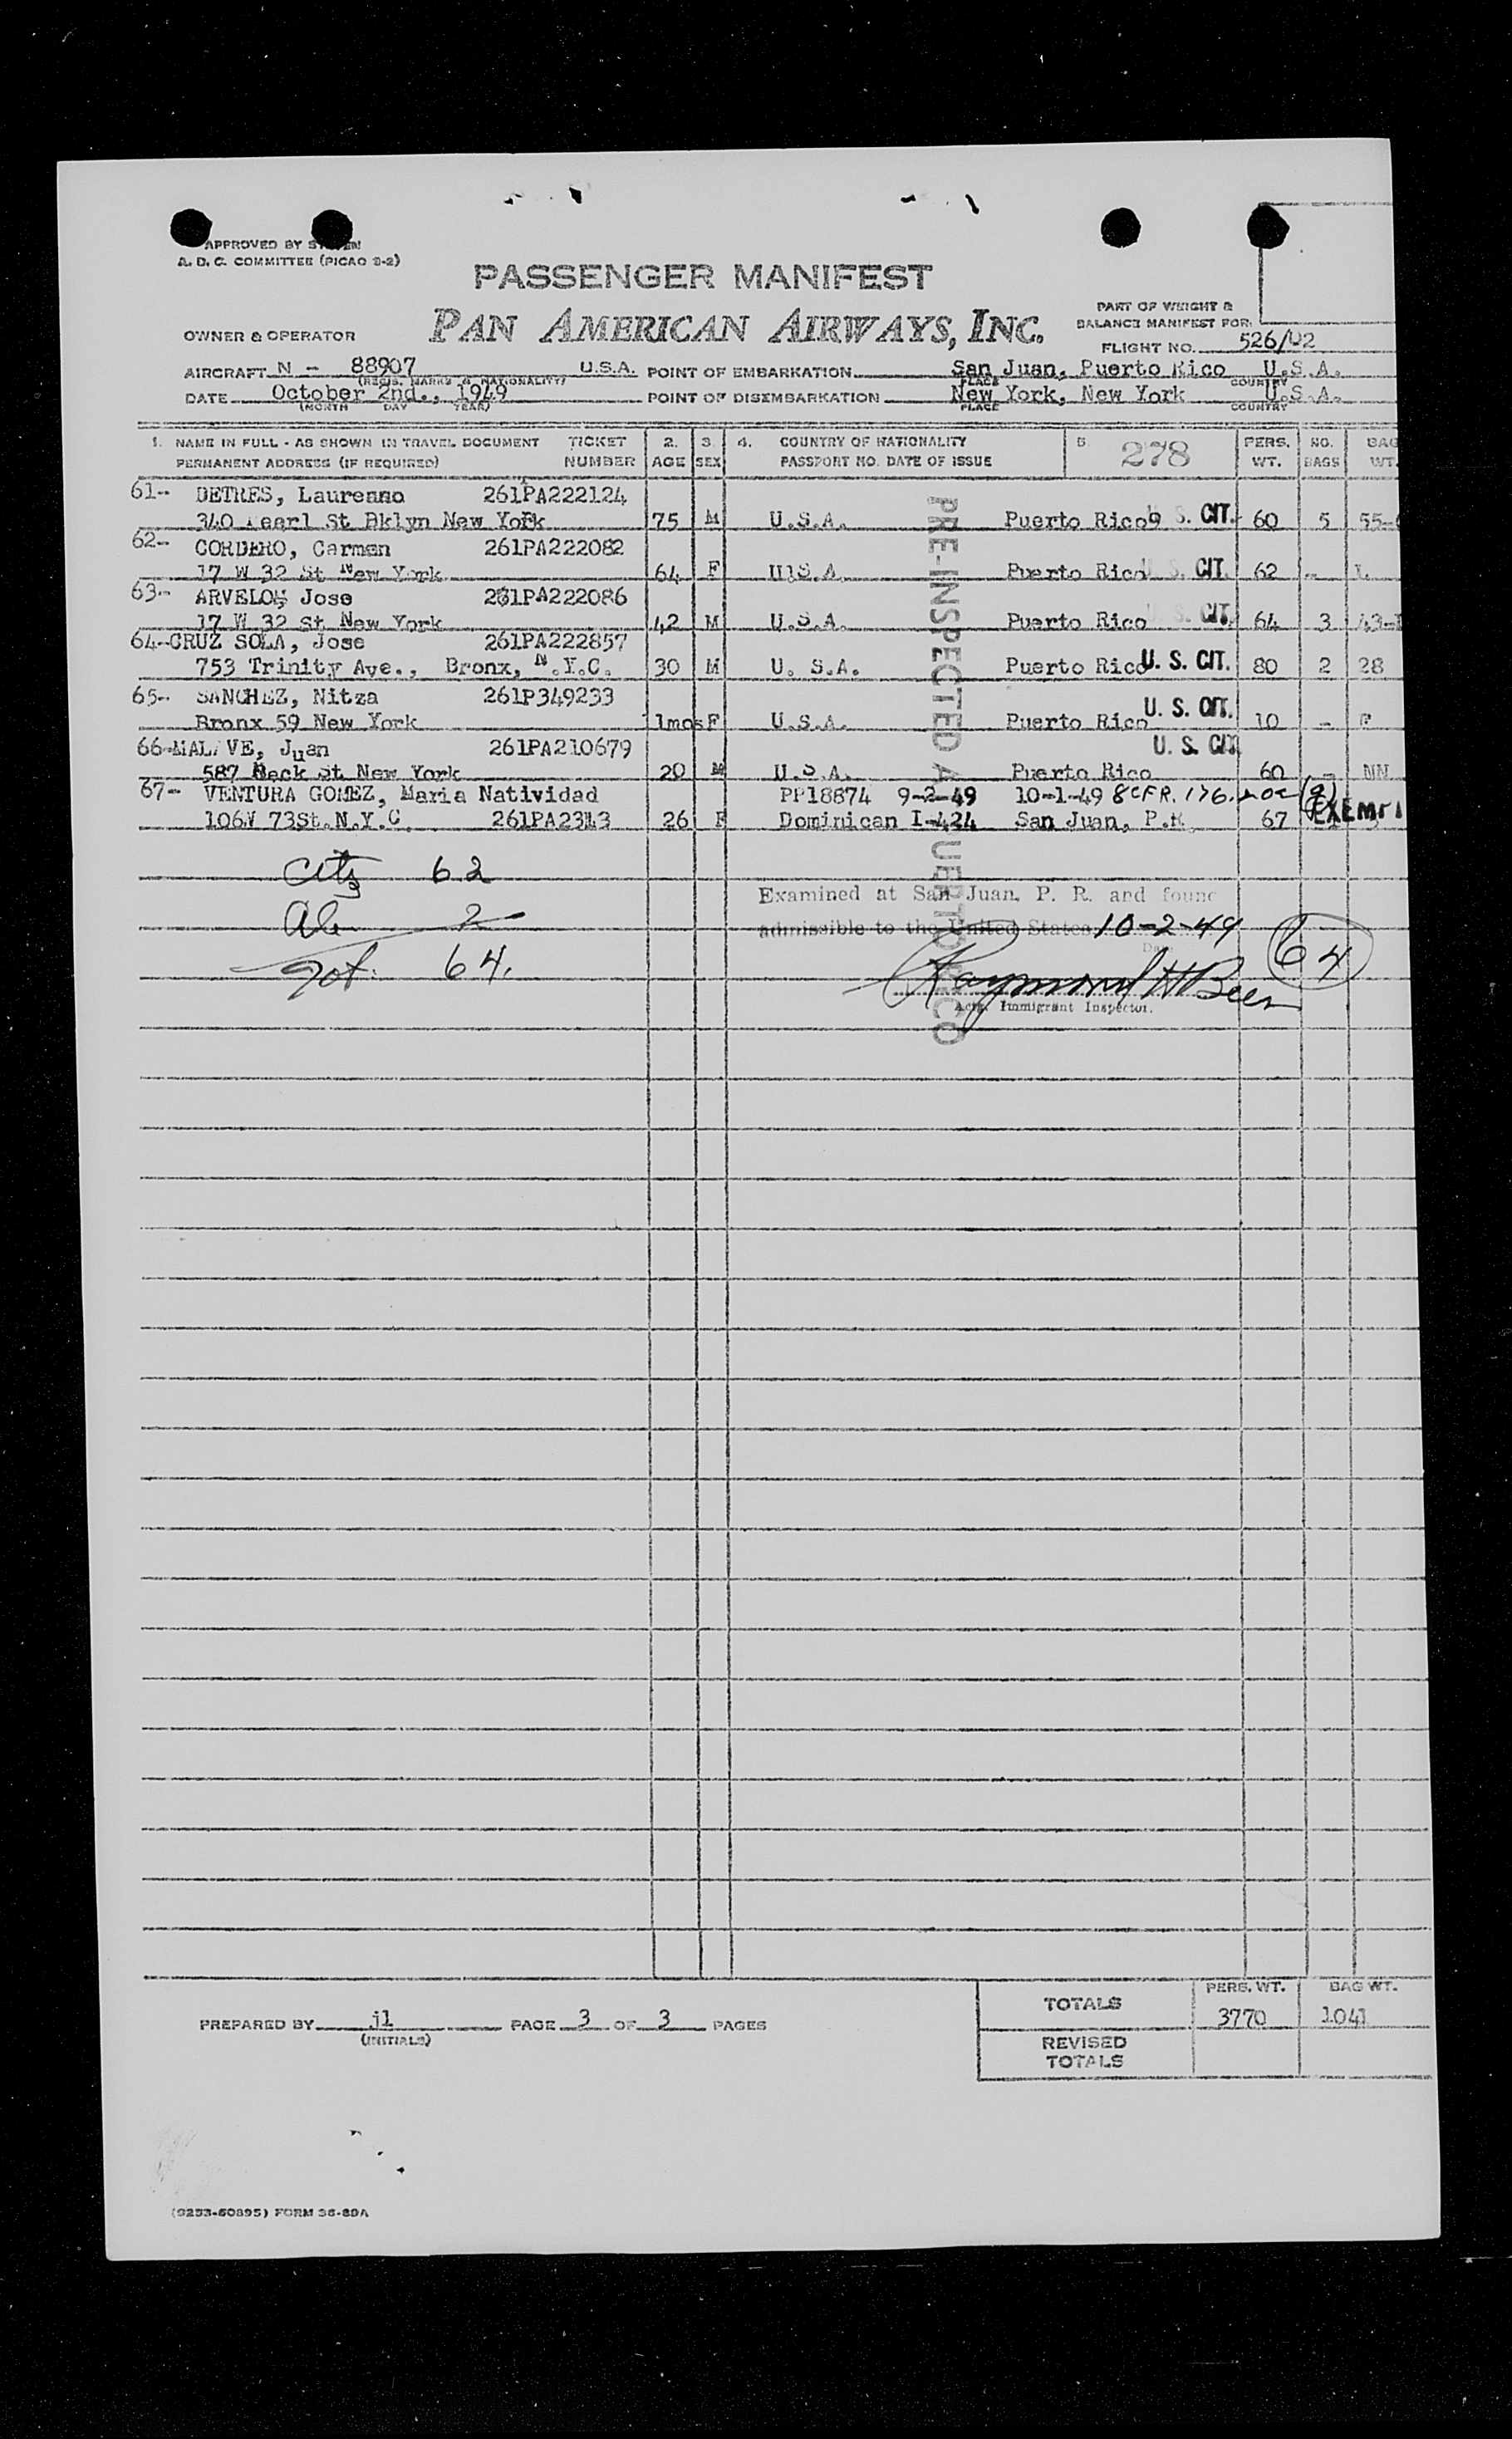 APPROVED BY
A. D. C. COMMITTEE (PICAO 2-2)
PASSENGER MANIFEST
PAN AMERICAN AIRWAYS, INC.
OWNER & OPERATOR
PART OF WEIGHT &
BALANCE MANIFEST FOR:
FLIGHT NO. 526/02
AIRCRAFT N - 88907 U.S.A. POINT OF EMBARKATION San Juan, Puerto Rico U.S.A.
(REGIS. MARKS & NATIONALITY) PLACE COUNTRY
DATE October 2nd., 1949 POINT OF DISEMBARKATION New York, New York U.S.A.
(MONTH DAY YEAR) PLACE COUNTRY
1. NAME IN FULL - AS SHOWN IN TRAVEL DOCUMENT TICKET 2. 3. 4. COUNTRY OF NATIONALITY 5. 278 PERS. NO. BAG
PERMANENT ADDRESS (IF REQUIRED) NUMBER AGE SEX PASSPORT NO. DATE OF ISSUE WT. BAGS WT.
61-- DETRES, Laureano 261PA222124
340 Pearl St Bklyn New York 75 M U.S.A. Puerto Rico S. CIT. 60 5 55-
62-- CORDERO, Carmen 261PA222082
17 W 32 St New York 64 F U.S.A. Puerto Rico S. CIT. 62 -
63-- ARVELO, Jose 261PA222086
17 W 32 St New York 42 M U.S.A. Puerto Rico S. CIT. 64 3 43-
64-CRUZ SOLA, Jose 261PA222857
753 Trinity Ave., Bronx, N.Y.C. 30 M U. S.A. Puerto Rico U. S. CIT. 80 2 28
65-- SANCHEZ, Nitza 261P349233
Bronx 59 New York 1mos F U.S.A. Puerto Rico U. S. CIT. 10 -
66-MALAVE, Juan 261PA210679 U. S. CIT
587 Beck St New York 20 M U.S.A. Puerto Rico 60 - NN
67- VENTURA GOMEZ, Maria Natividad PP18874 9-2-49 10-1-49 8CFR. 176.
106W 73St.N.Y.C. 261PA2313 26 F Dominican I-424 San Juan, P.R. 67 EXEMPT
PRE-INSPECTED AT PUERTO RICO
Citz 62
Al 2
Tot. 64.
Examined at San Juan, P. R. and found
admissible to the United States 10-2-49
Raymond H Beer
Actg. Immigrant Inspector.
64
PREPARED BY jl PAGE 3 OF 3 PAGES
(INITIALS)
PERS. WT. BAG WT.
TOTALS 3770 1041
REVISED
TOTALS
(9253-60895) FORM 36-89A